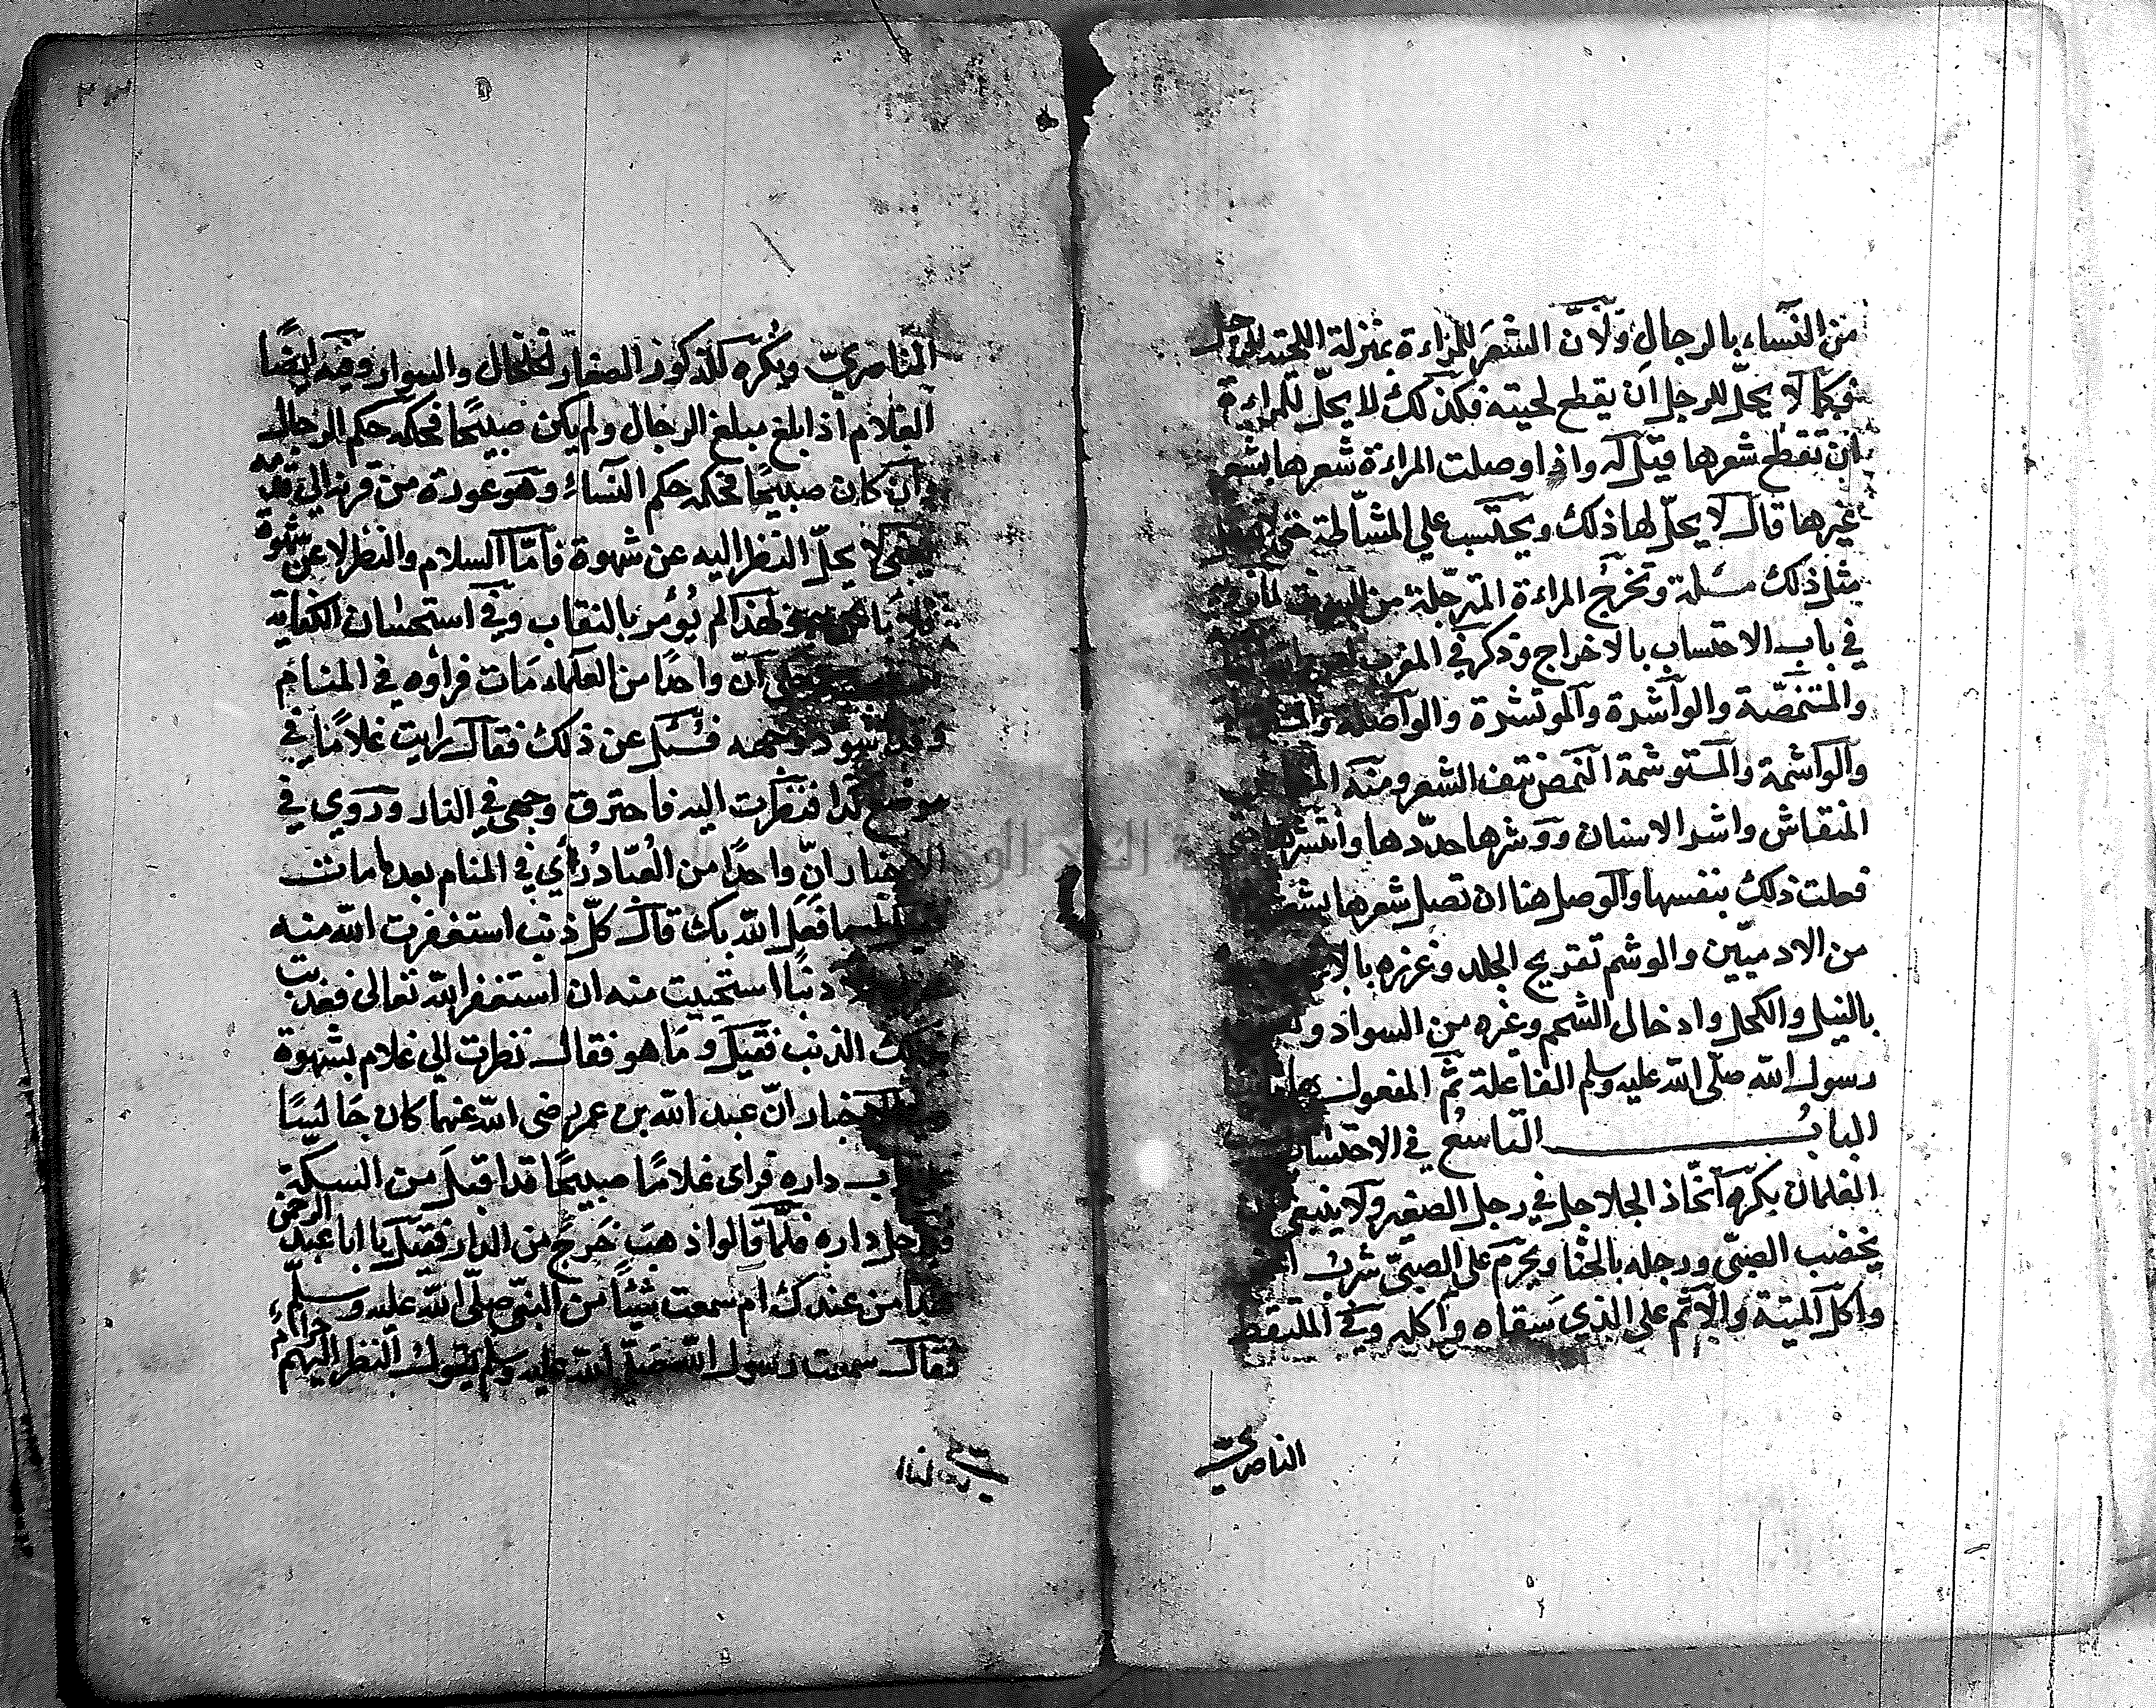 من النساء بالرجال ولان الشعر للمراءة بمنزلة اللحية للرجل
فكما لا يحلّ للرجل ان يقطع لحيته فكذلك لا يحلّ للمراءة
ان تقطع شعرها قيل له واذا وصلت المراءة شعرها بشعر
غيرها قال لا يحلّ لها ذلك ويحتسب على المشاطة
مثل ذلك مسئلة وتخرج المراءة المترجّلة من البيوت
في باب الاحتساب بالاخراج وذكر في المغرب
والمتنمّصة والواشرة والموتشرة والواصلة
والواشمة والمستوشمة النمص نتف الشعر ومنه
المنقاش واشر الاسنان ووشرها حدّدها وائتشرها
فعلت ذلك بنفسها والوصل هنا ان تصل شعرها بشعر
من الادميّين والوشم تقريح الجلد وغرزه
بالنيل والكحل وادخال الشحم وغره من السواد
رسول الله صلّى الله عليه وسلم الفاعلة ثم المفعول بها
الباب التاسع في الاحتساب
الغلمان يكره اتّخاذ الجلاجل في رجل الصغير ولا ينبغي ان
يخضب الصبيّ ورجله بالحنّا ويحرم على الصبيّ شرب
واكل الميتة والاثم على الذي سقاه واكله وفي الملتقط
الناصريّ
الناصريّ ويكره للذكور الصغار الخلخال والسوار وفيه ايضًا
الغلام اذا بلغ مبلغ الرجال ولم يكن صبيحًا فحكمه حكم الرجال
وان كان صبيحًا فحكمه حكم النساء وهو عورة من قرنه الى قدمه
يعني لا يحلّ النظر اليه عن شهوة فامّا السلام والنظر لا عن شهوة
فلا باس به ولهذا لم يؤمر بالنقاب وفي استحسان الكفاية
حكي انّ واحدًا من العلماء مات فراوه في المنام
وقد اسود وجهه فسئل عن ذلك فقال رايت غلامًا في
موضع كذا فنظرت اليه فاحترق وجهي في النار وروي في
الاخبار انّ واحدًا من العُبّاد رُأي في المنام بعد ما مات
ما فعل الله بك قال كلّ ذنب استغفرت الله منه
ذنبًا استحييت منه ان استغفر الله تعالى فعذبت
بذلك الذنب فقيل وما هو فقال نظرت الى غلام بشهوة
الاخبار انّ عبد الله بن عمر رضى الله عنهما كان جالسًا
باب داره فراى غلامًا صبيحًا قد اقبل من السكّة
فدخل داره فلمّا قالوا ذهب خرج من الدار فقيل يا ابا عبد الرحمن
هذا من عندك ام سمعت شيئًا من النبيّ صلّى الله عليه وسلّم
فقال سمعت رسول الله صلّى الله عليه وسلم يقول النظر اليهم حرام